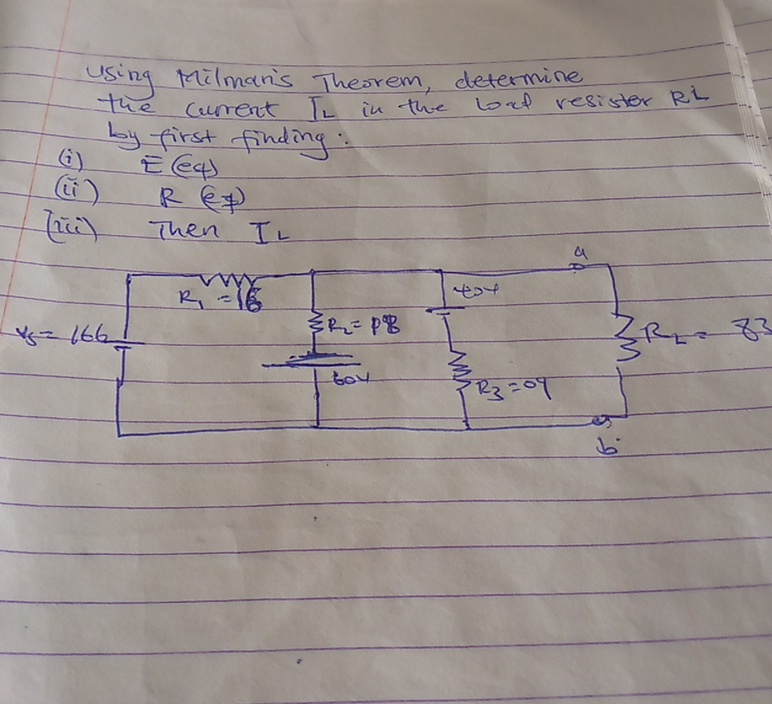 Using Milman's Theorem, determine
the current IL in the load resister RL
by first finding:
(i) E (eq)
(ii) R (eq)
(iii) Then IL
a
R1 = 16
40V
Vs = 166
R2 =
RL = 83
60V
R3 = 09
b